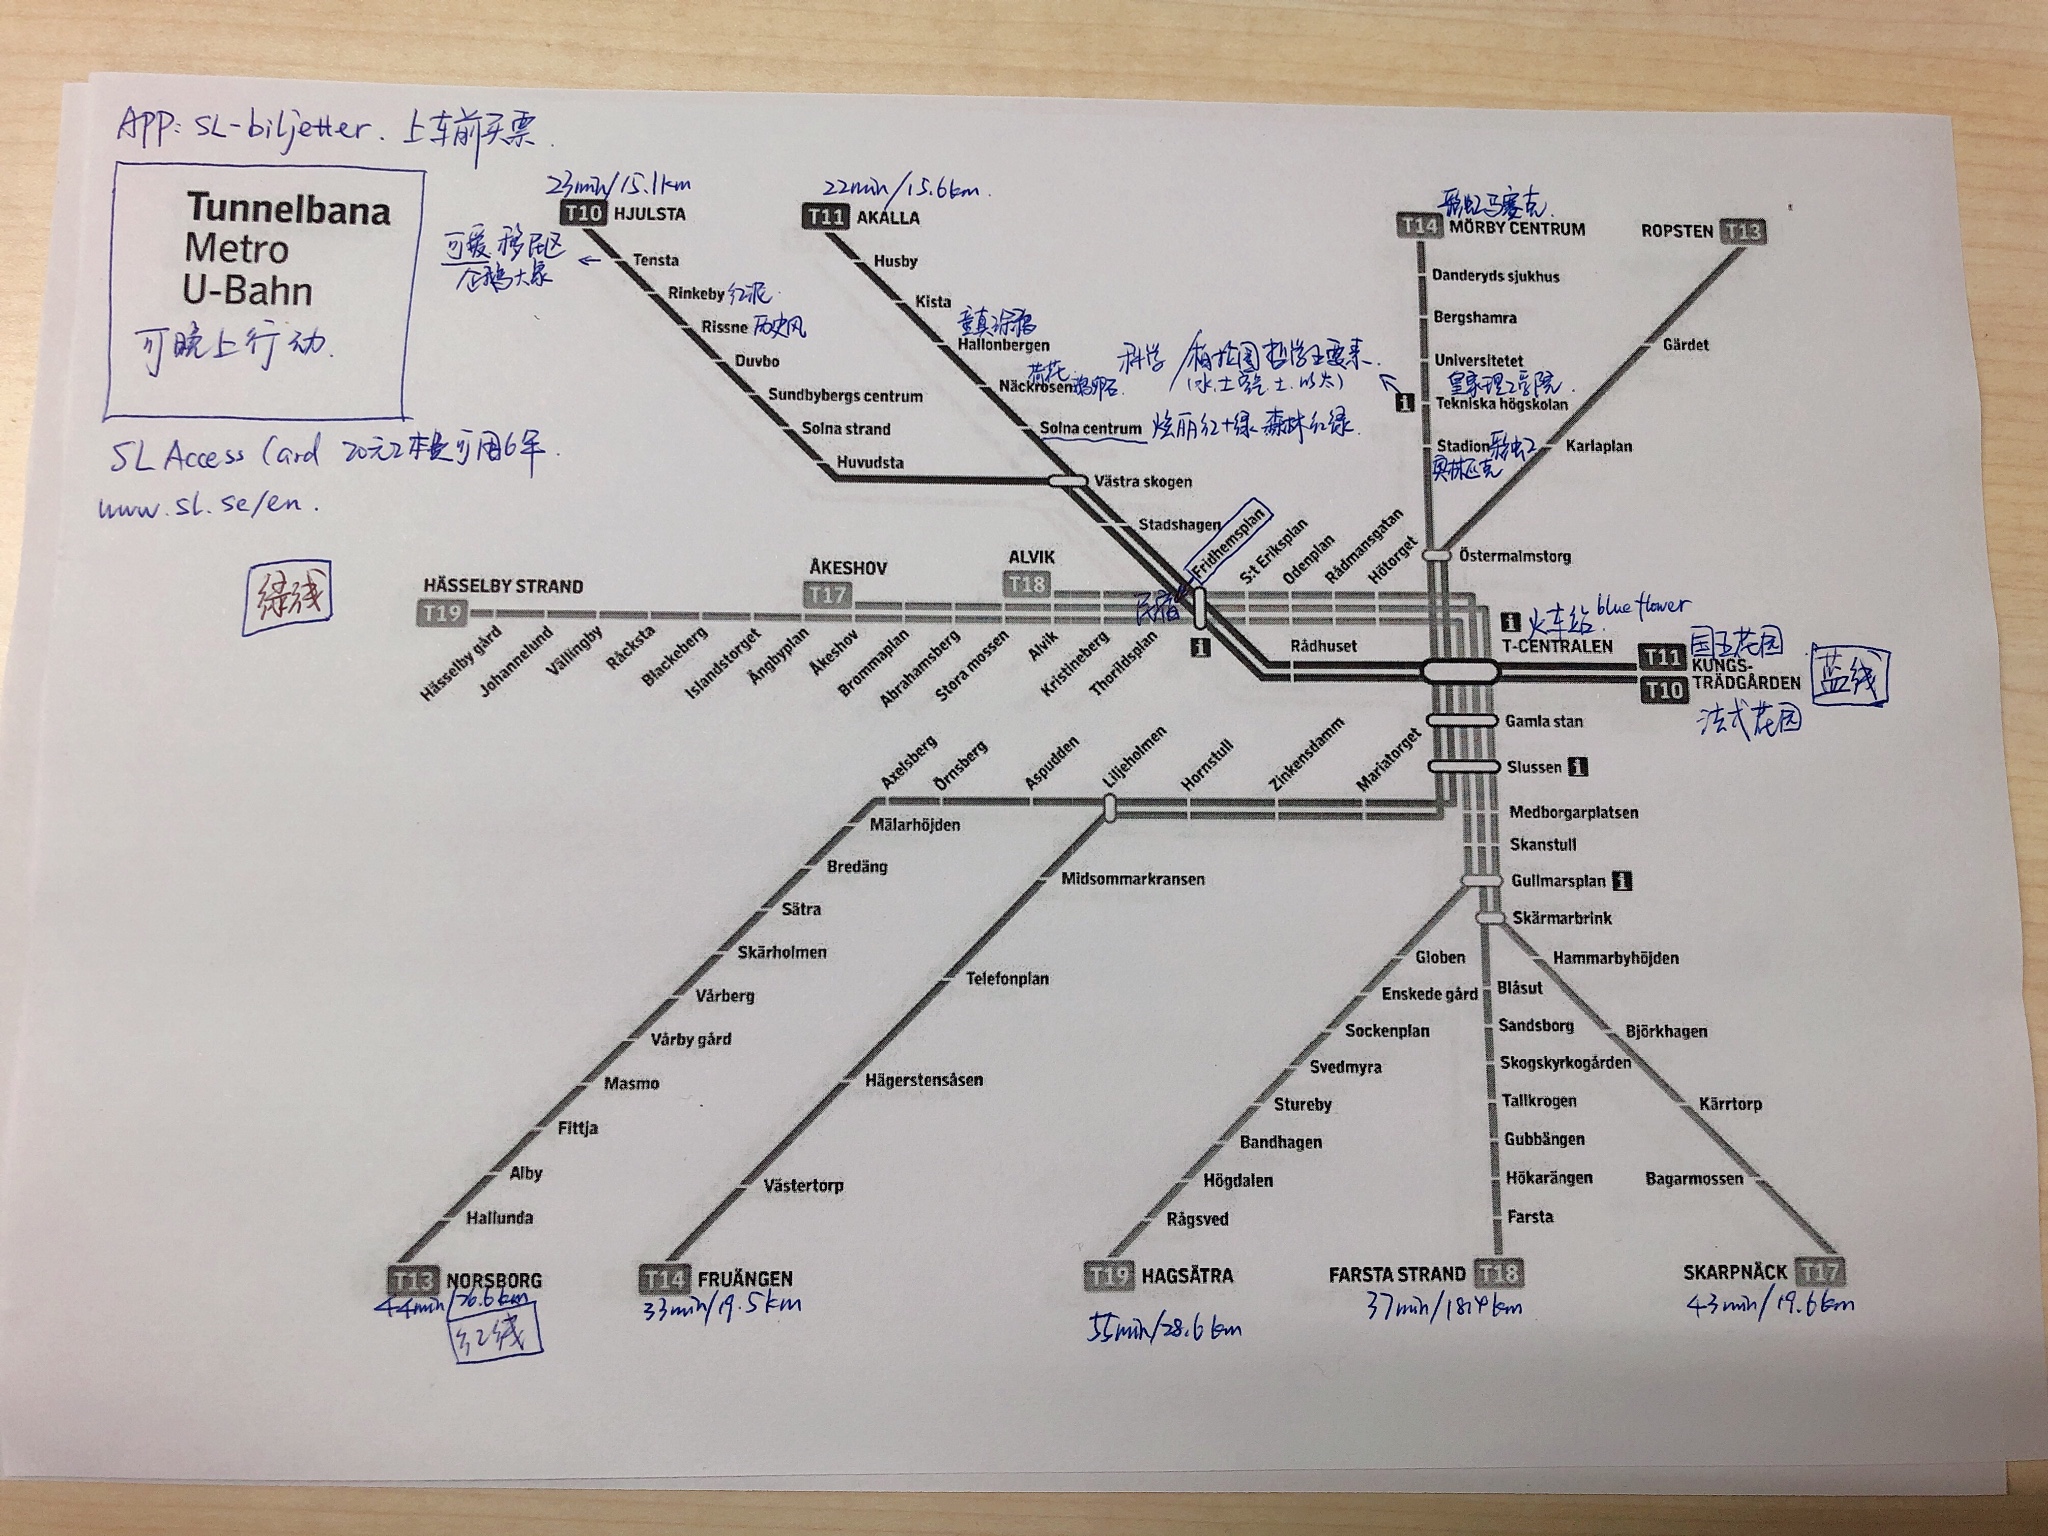 APP: SL-biljetter. 上车前买票
Tunnelbana
Metro
U-Bahn
可晚上行动.
SL Access Card 20元 可用6年.
www.sl.se/en.
23min/15.1km
T10 HJULSTA
可爱 移民区
企鹅大象
Tensta
Rinkeby 红泥
Rissne 历史风
Duvbo
Sundbybergs centrum
Solna strand
Huvudsta
22min/15.6km.
T11 AKALLA
Husby
Kista
童真涂鸦
Hallonbergen
荷花
Näckrosen 鹅卵石
Solna centrum 炫丽红+绿 森林红绿
Västra skogen
Stadshagen
Fridhemsplan
民宿
彩虹马赛克
T14 MÖRBY CENTRUM
ROPSTEN T13
Danderyds sjukhus
Bergshamra
Universitetet
科学/柏拉图哲学五要素.
皇家理工学院.
Tekniska högskolan
Stadion 彩虹
奥林匹克
Gärdet
Karlaplan
Östermalmstorg
绿线
HÄSSELBY STRAND
T19
ÅKESHOV
T17
ALVIK
T18
S:t Eriksplan
Odenplan
Rådmansgatan
Hötorget
Hässelby gård
Johannelund
Vällingby
Råcksta
Blackeberg
Islandstorget
Ängbyplan
Åkeshov
Brommaplan
Abrahamsberg
Stora mossen
Alvik
Kristineberg
Thorildsplan
Rådhuset
火车站 blue flower
T-CENTRALEN
T11 国王花园
KUNGS-
T10 TRÄDGÅRDEN
法式花园
蓝线
Gamla stan
Slussen
Axelsberg
Örnsberg
Aspudden
Liljeholmen
Hornstull
Zinkensdamm
Mariatorget
Medborgarplatsen
Skanstull
Gullmarsplan
Skärmarbrink
Mälarhöjden
Bredäng
Sätra
Skärholmen
Vårberg
Vårby gård
Masmo
Fittja
Alby
Hallunda
T13 NORSBORG
44min/26.6km
红线
Midsommarkransen
Telefonplan
Hägerstensåsen
Västertorp
T14 FRUÄNGEN
33min/19.5km
Globen
Enskede gård
Sockenplan
Svedmyra
Stureby
Bandhagen
Högdalen
Rågsved
T19 HAGSÄTRA
55min/28.6km
Blåsut
Sandsborg
Skogskyrkogården
Tallkrogen
Gubbängen
Hökarängen
Farsta
FARSTA STRAND T18
37min/18.4km
Hammarbyhöjden
Björkhagen
Kärrtorp
Bagarmossen
SKARPNÄCK T17
43min/19.6km